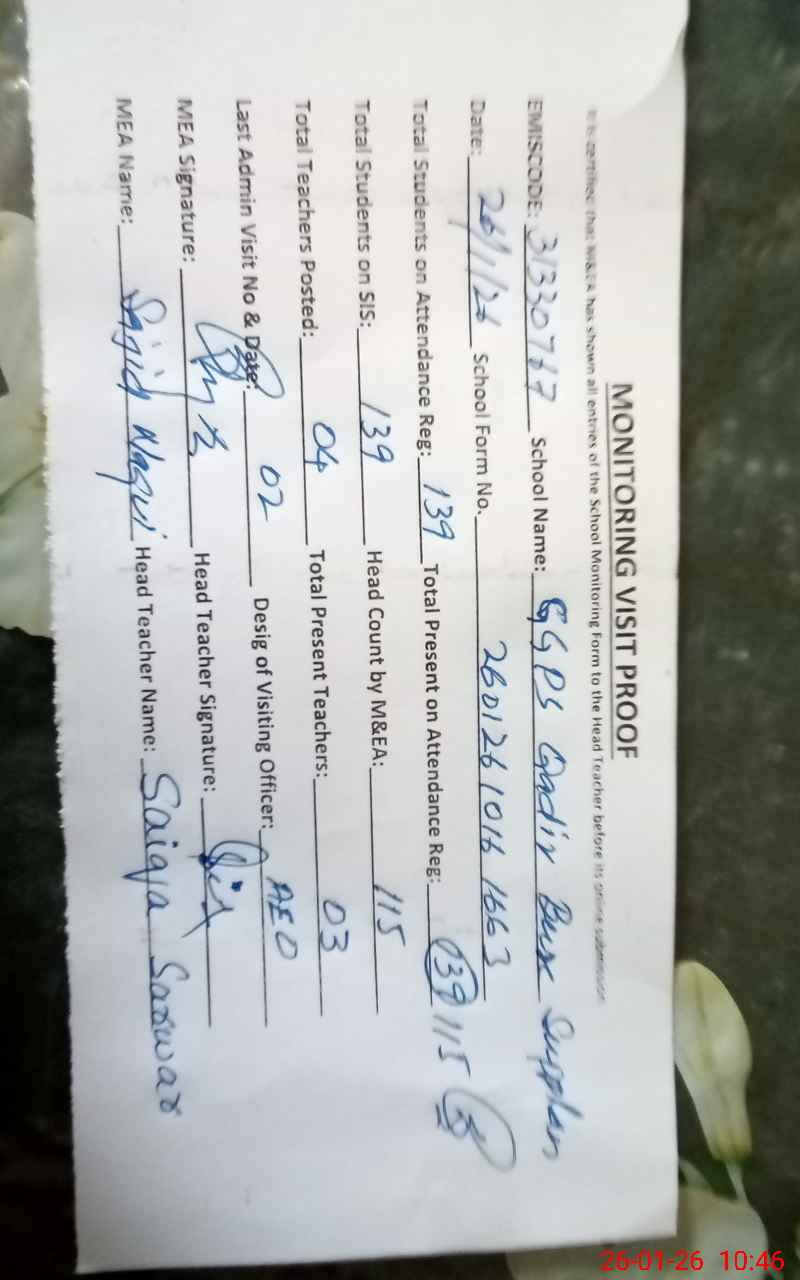 MONITORING VISIT PROOF
It is certified that M&EA has shown all entries of the School Monitoring Form to the Head Teacher before its online submission
EMISCODE: 31330767 School Name: GGPS Qadir Bux
Date: 26/1/26 School Form No. 2601261016 1663
Total Students on Attendance Reg: 139 Total Present on Attendance Reg: 139 115
Total Students on SIS: 139 Head Count by M&EA: 115
Total Teachers Posted: 04 Total Present Teachers: 03
Last Admin Visit No & Date: 02 Desig of Visiting Officer: AEO
MEA Signature: Head Teacher Signature:
MEA Name: Sajid Naqvi Head Teacher Name: Saiqa Sarwar
26-01-26 10:46